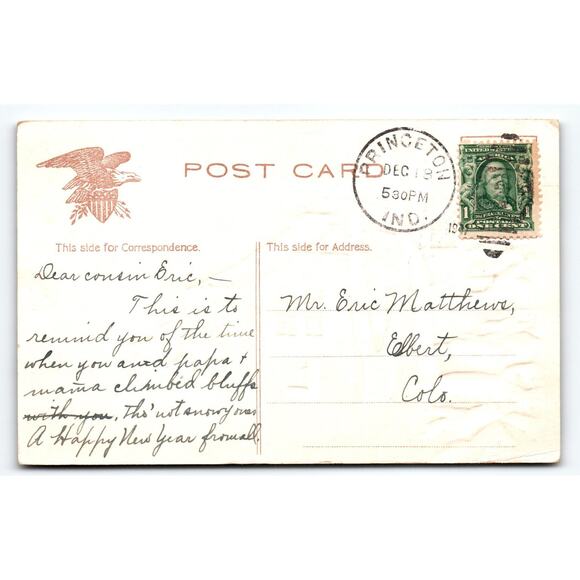 POST CARD
PRINCETON
DEC 18
530PM
IND.
190
UNITED STATES
OF AMERICA
1
POSTAGE
ONE CENT
This side for Correspondence.
This side for Address.
Dear cousin Eric, —
This is to
remind you of the time
when you and papa +
mama climbed bluffs
with you, tho' not snowy ones
A Happy New Year from all.
Mr. Eric Matthews,
Elbert,
Colo.